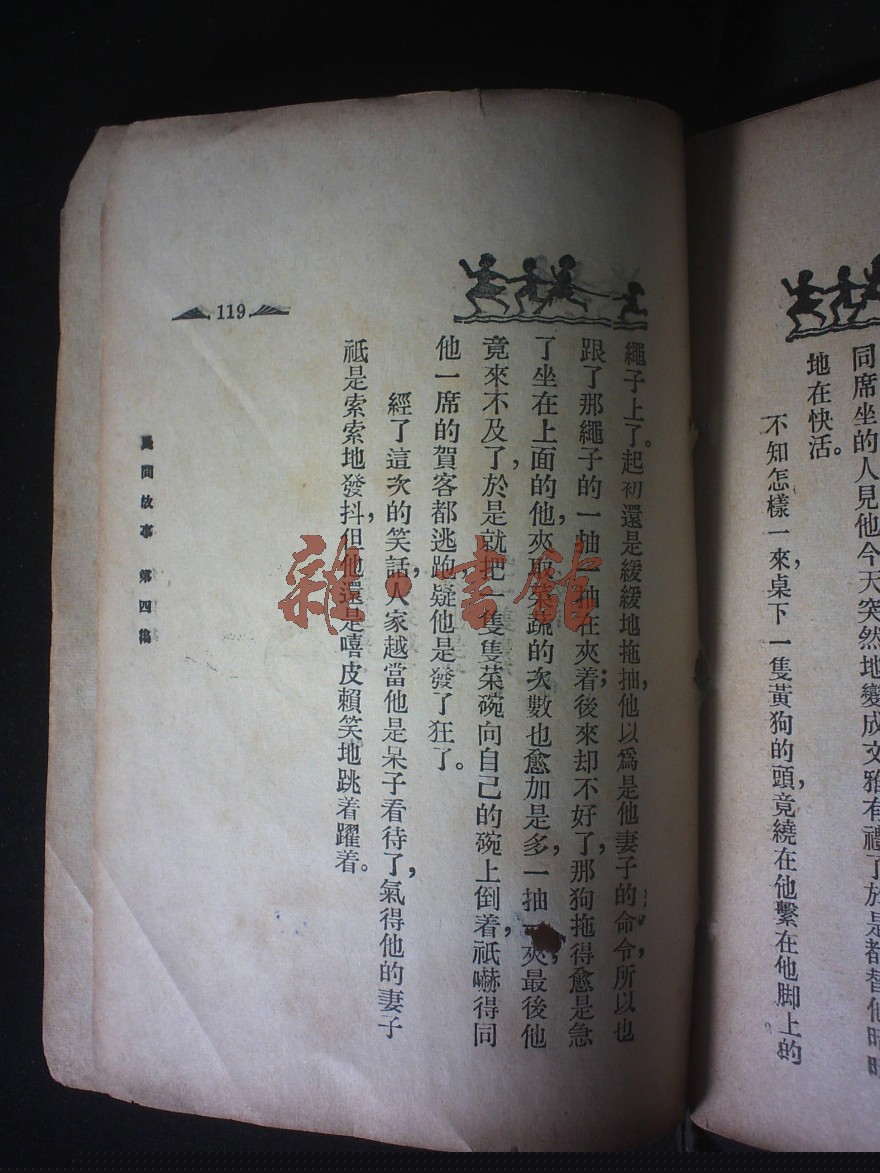 同席坐的人見他今天突然地變成文雅有禮了於是都替他暗暗
地在快活。
不知怎樣一來，桌下一隻黃狗的頭，竟繞在他繫在他脚上的
繩子上了。起初還是緩緩地拖抽，他以為是他妻子的命令，所以也
跟了那繩子的一抽一抽在夾着；後來却不好了，那狗拖得愈是急
了，坐在上面的他，夾取菜蔬的次數也愈加是多，一抽一夾，最後他
竟來不及了，於是就把一隻隻菜碗向自己的碗上倒着，祇嚇得同
他一席的賀客都逃跑，疑他是發了狂了。
經了這次的笑話，人家越當他是呆子看待了，氣得他的妻子
祇是索索地發抖，但他還是嘻皮賴笑地跳着躍着。
119
民間故事 第四編
雜·書館